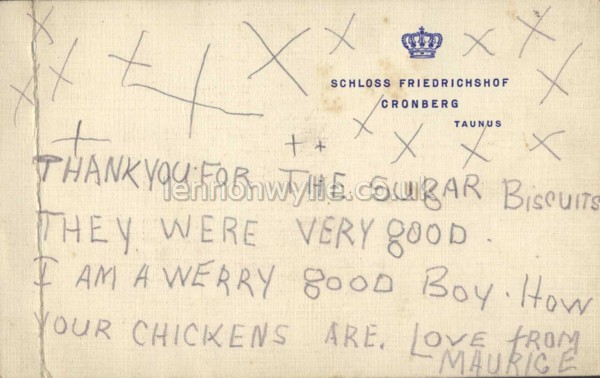 SCHLOSS FRIEDRICHSHOF
CRONBERG
TAUNUS
THANK YOU FOR THE SUGAR BISCUITS
THEY WERE VERY GOOD.
I AM A WERRY GOOD BOY. HOW
YOUR CHICKENS ARE. LOVE FROM
MAURICE
lennonwylie.co.uk